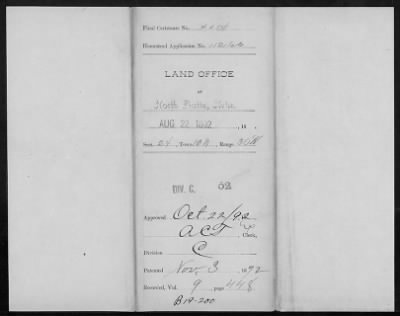 Final Certificate No.
Homestead Application No.
LAND OFFICE
AT
North Platte, Nebr.
AUG 22 1892, 18 .
Sect. 24, Town , Range 30 W
DIV. C. 52
Approved Oct 22/92
ACT Clerk,
Division C
Patented Nov. 3, 1892
Recorded, Vol. 9, page 448
B19-200